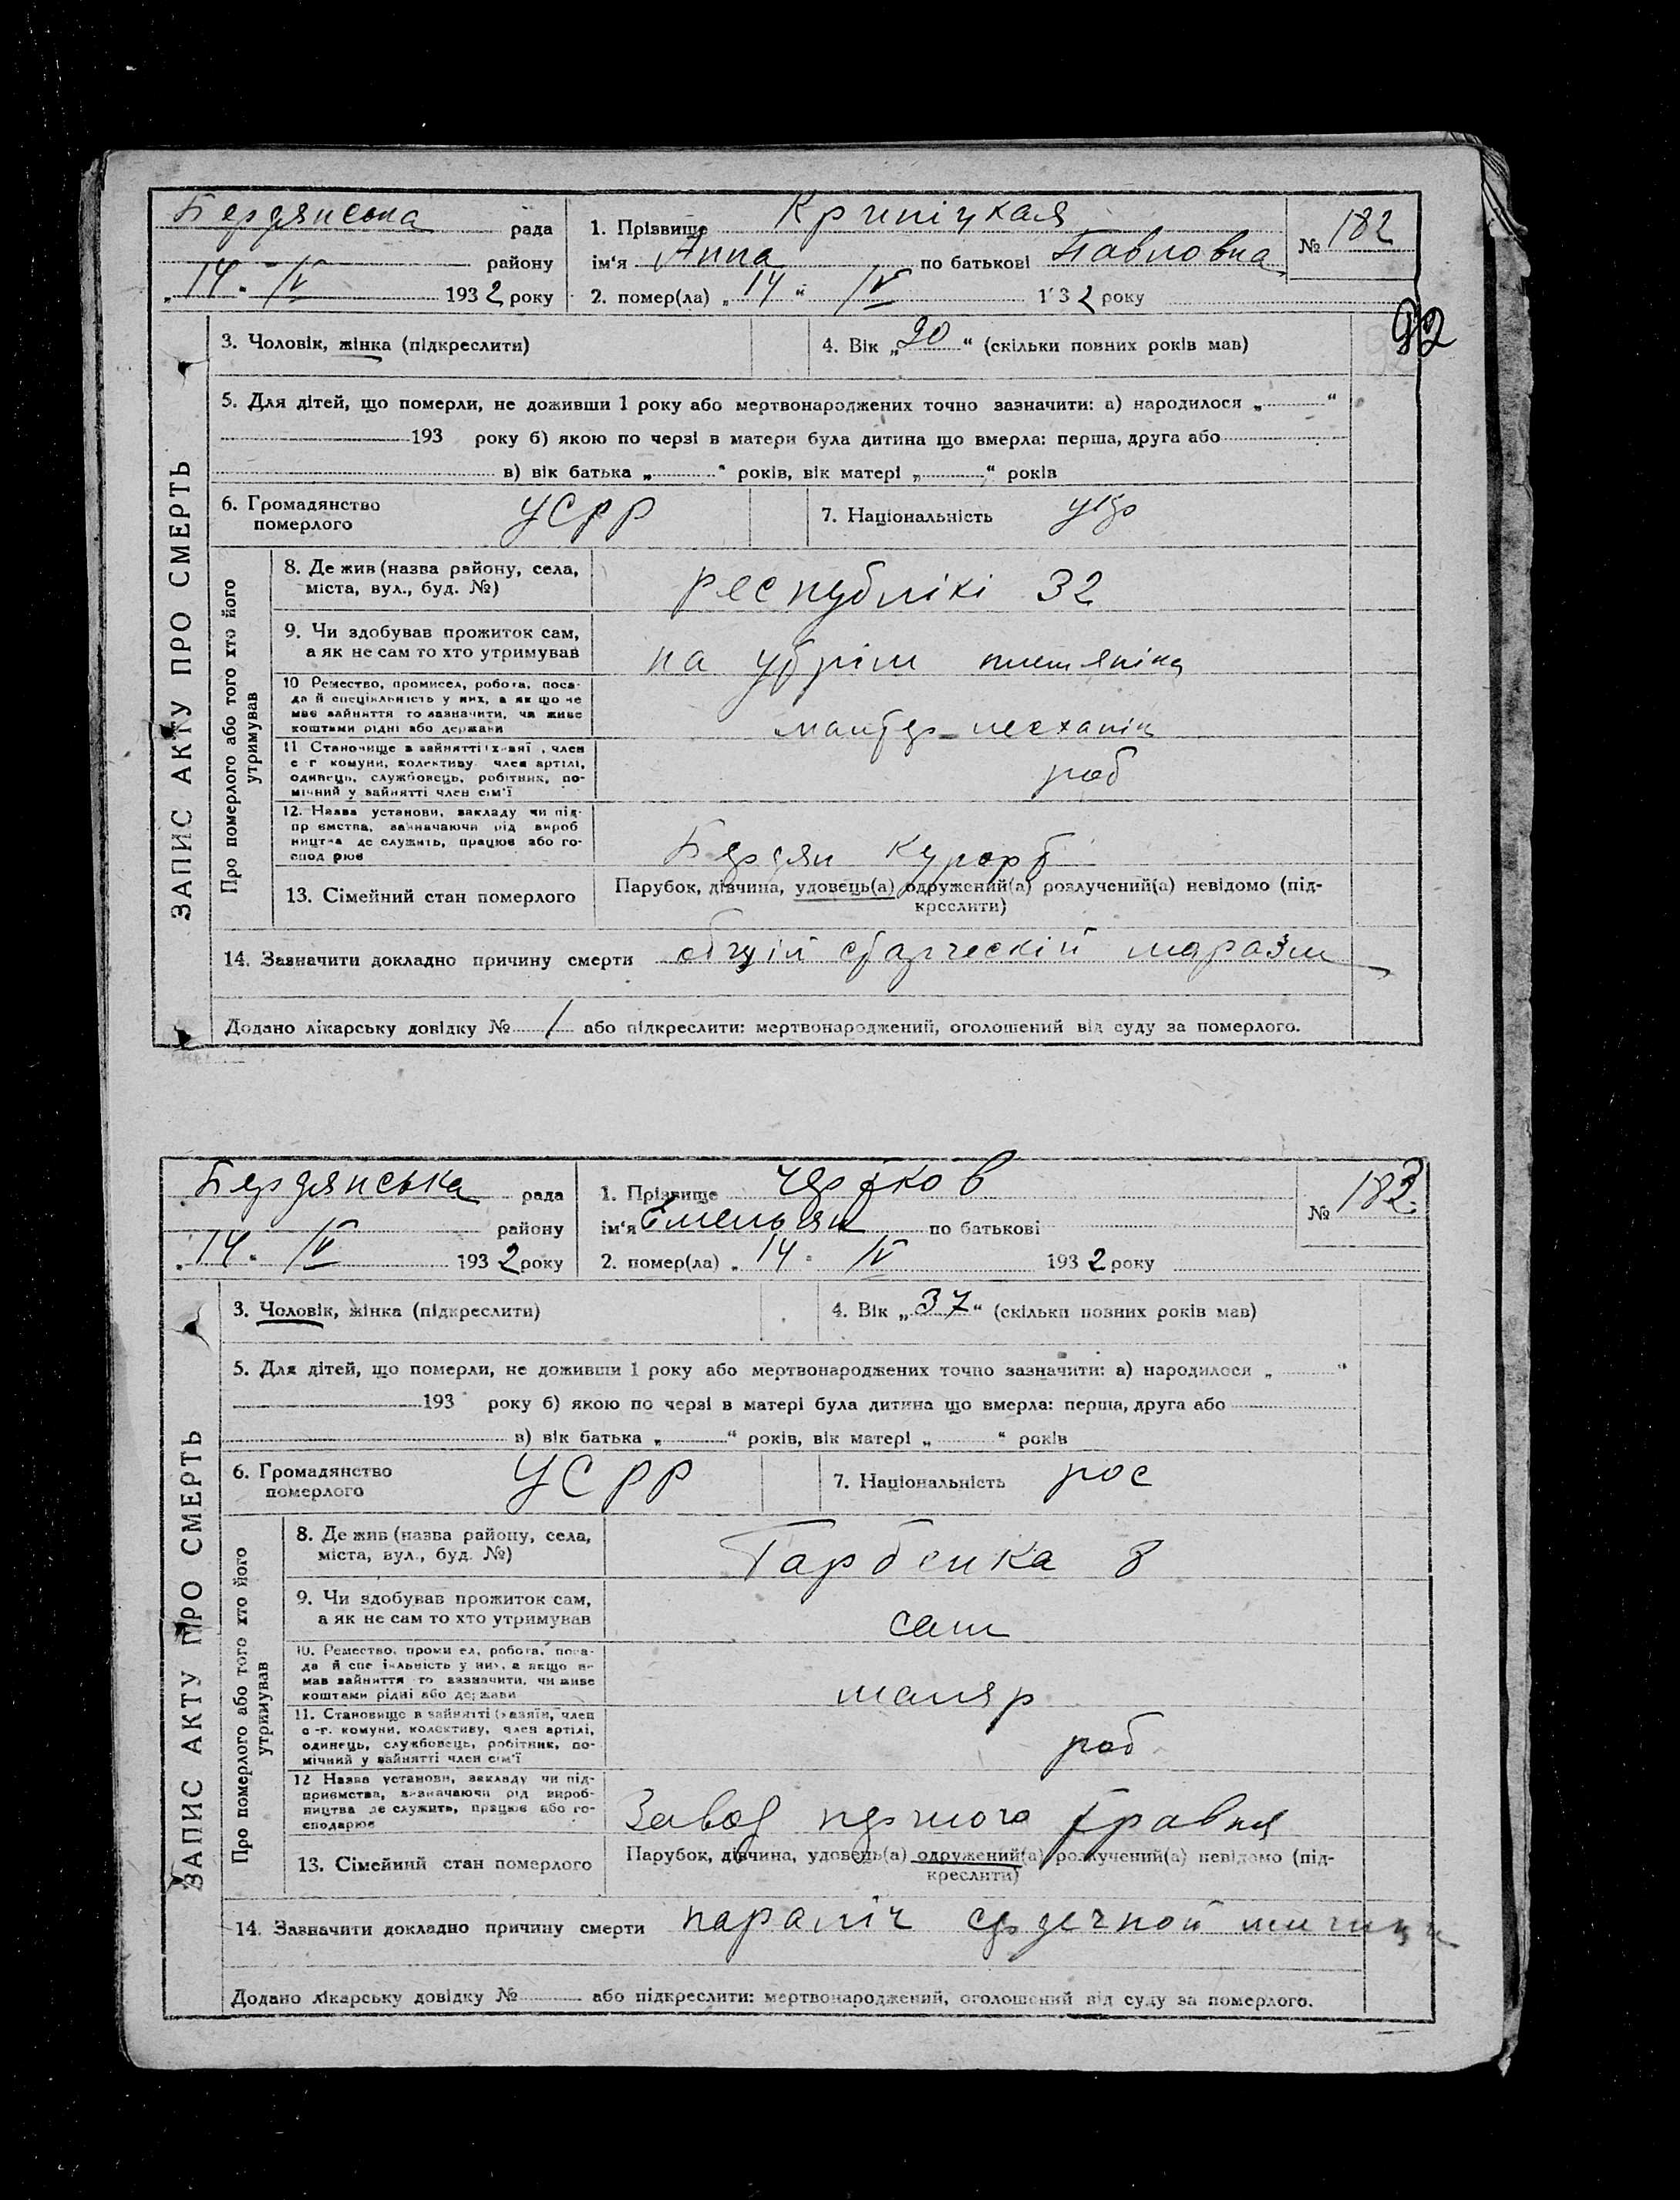 Бердянська рада
1. Прізвище Криніцкая
№ 182
району
ім'я Анна по батькові Павловна
„14" IV 1932 року
2. помер(ла) „14" IV 132 року
92
3. Чоловік, жінка (підкреслити)
4. Вік „90" (скільки повних років мав)
5. Для дітей, що померли, не доживши 1 року або мертвонароджених точно зазначити: а) народилося „ "
193 року б) якою по черзі в матери була дитина що вмерла: перша, друга або
в) вік батька „ " років, вік матері „ " років
6. Громадянство померлого УСРР
7. Національність укр
ЗАПИС АКТУ ПРО СМЕРТЬ
Про померлого або того хто його утримував
8. Де жив (назва району, села,
міста, вул., буд. №)
республікі 32
9. Чи здобував прожиток сам,
а як не сам то хто утримував
на утрім
10 Ремество, промисел, робота, поса-
да й спеціяльність у них, а як що не
має зайняття то зазначити, чи живе
коштами рідні або держави
монтер-механік
11 Становище в зайнятті (хазяї, член
с г комуни, колективу член артілі,
одинець, службовець, робітник, по-
мічний у зайнятті член сім'ї
роб
12. Назва установи, закладу чи під-
приємства, зазначаючи рід вироб
ництва де служить, працює або го-
спод рює
Бердян Курорт
13. Сімейний стан померлого
Парубок, дівчина, удовець(а) одружений(а) розлучений(а) невідомо (під-
креслити)
14. Зазначити докладно причину смерти общій старческій маразм
Додано лікарську довідку № / або підкреслити: мертвонароджений, оголошений від суду за померлого.
Бердянська рада
1. Прізвище Чертков
№ 183.
району
ім'я Емельян по батькові
„14" IV 1932 року
2. помер(ла) „14" IV 1932 року
3. Чоловік, жінка (підкреслити)
4. Вік „37" (скільки повних років мав)
5. Для дітей, що померли, не доживши 1 року або мертвонароджених точно зазначити: а) народилося „ "
193 року б) якою по черзі в матері була дитина що вмерла: перша, друга або
в) вік батька „ " років, вік матері „ " років
6. Громадянство померлого УСРР
7. Національність рос
ЗАПИС АКТУ ПРО СМЕРТЬ
Про померлого або того хто його утримував
8. Де жив (назва району, села,
міста, вул., буд. №)
8
9. Чи здобував прожиток сам,
а як не сам то хто утримував
сам
10. Ремество, промисел, робота, поса-
да й спеціяльність у них, а якщо не
мав зайняття то зазначити, чи живе
коштами рідні або держави
маляр
11. Становище в зайнятті (хазяїн, член
с-г. комуни, колективу, член артілі,
одинець, службовець, робітник, по-
мічний у зайнятті член сім'ї
роб
12 Назва установи, закладу чи під-
приємства, зазначаючи рід вироб-
ництва де служить, працює або го-
сподарює
Завод першого травня
13. Сімейний стан померлого
Парубок, дівчина, удовець(а) одружений(а) розлучений(а) невідомо (під-
креслити)
14. Зазначити докладно причину смерти параліч сердечной мишци
Додано лікарську довідку № або підкреслити: мертвонароджений, оголошений від суду за померлого.